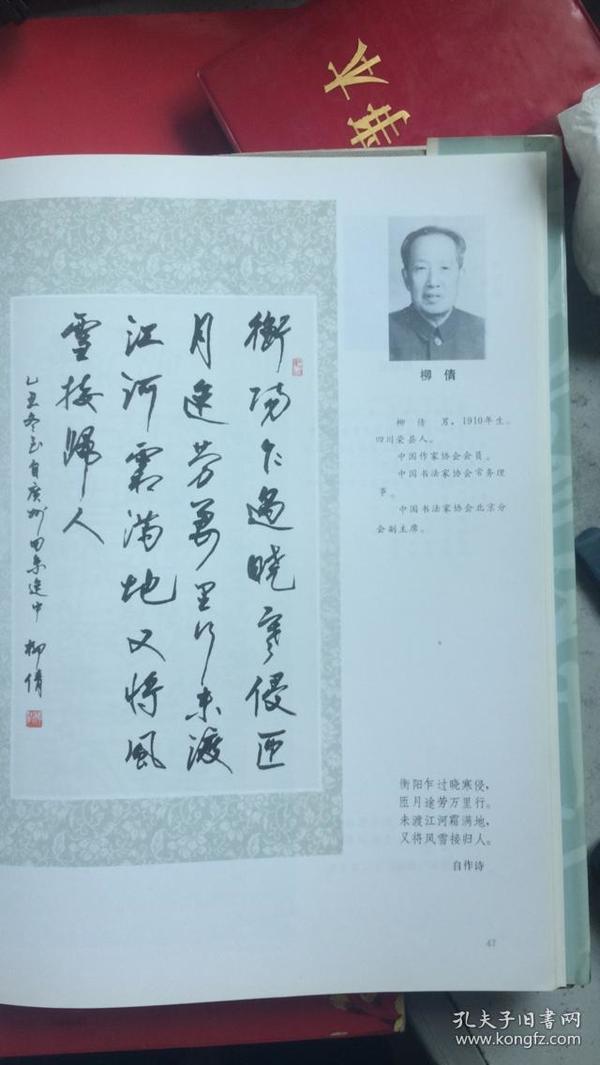 衡阳乍過晓寒侵匝
月途劳萬里行未渡
江河霜满地又将風
雪接歸人
乙丑冬至自廣州回京途中 柳倩
柳倩
柳 倩 男，1910年生。
四川荣县人。
中国作家协会会员。
中国书法家协会常务理
事。
中国书法家协会北京分
会副主席。
衡阳乍过晓寒侵，
匝月途劳万里行。
未渡江河霜满地，
又将风雪接归人。
自作诗
47
孔夫子旧书网
www.kongfz.com